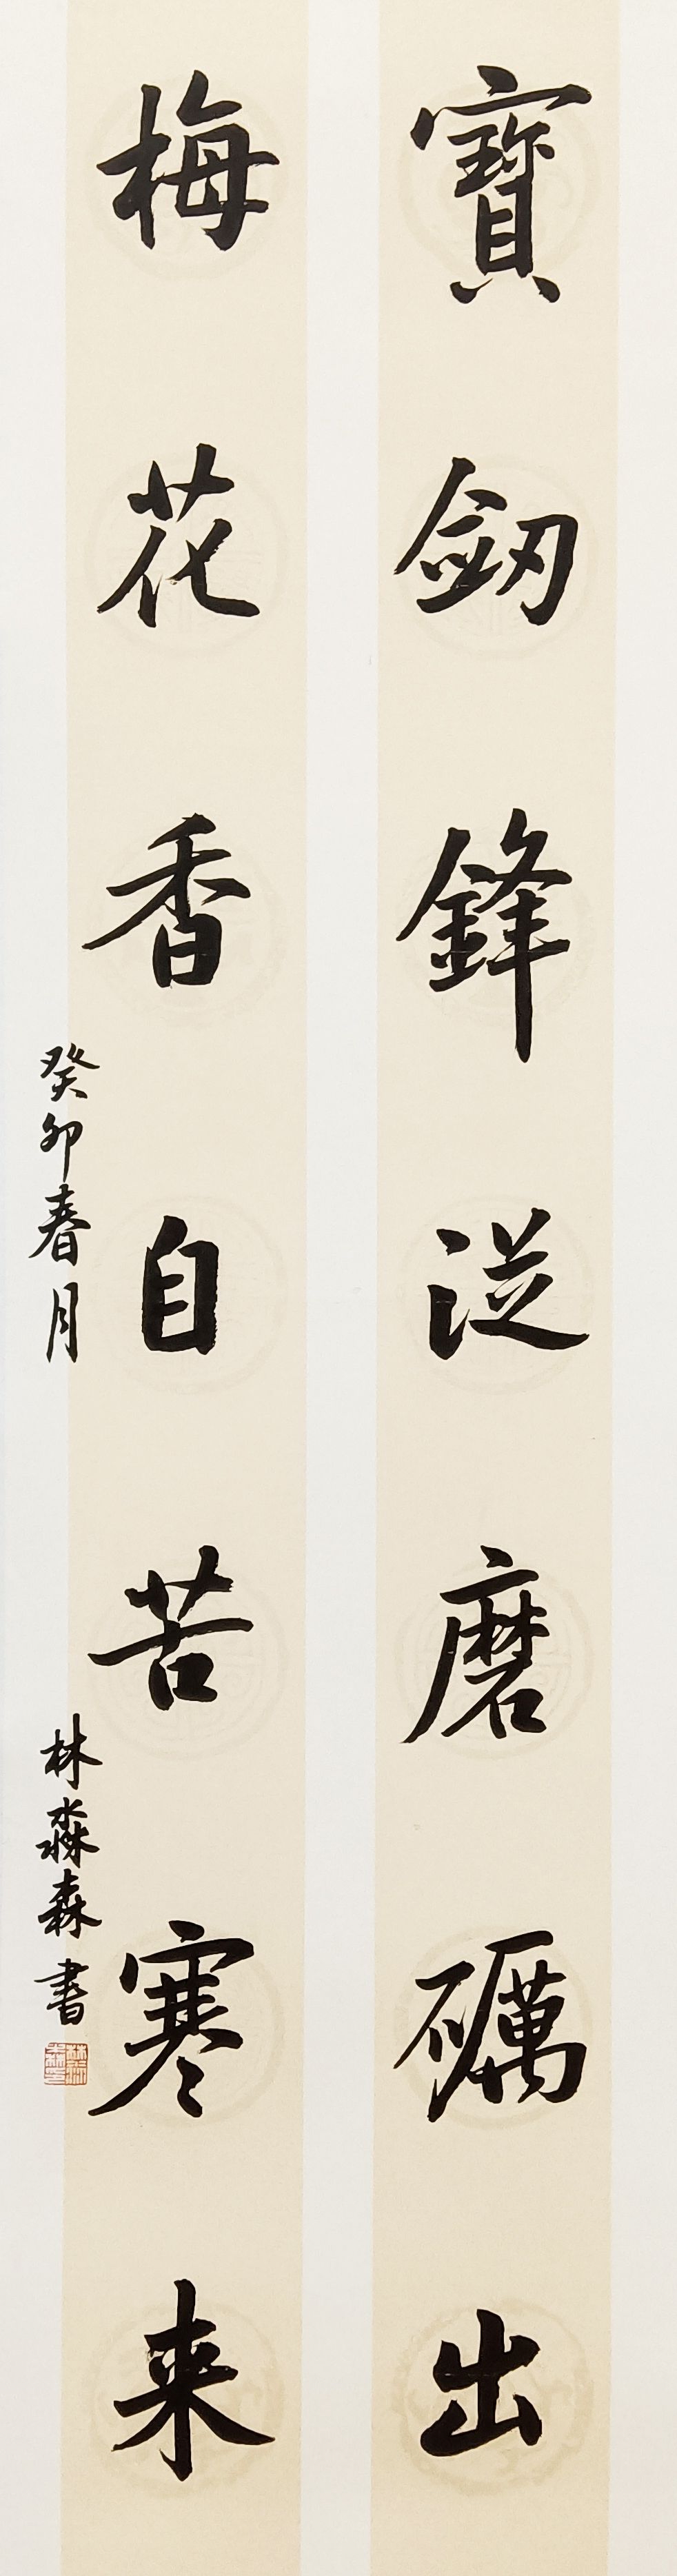 寶劒鋒從磨礪出
梅花香自苦寒来
癸卯春月
林淼森書